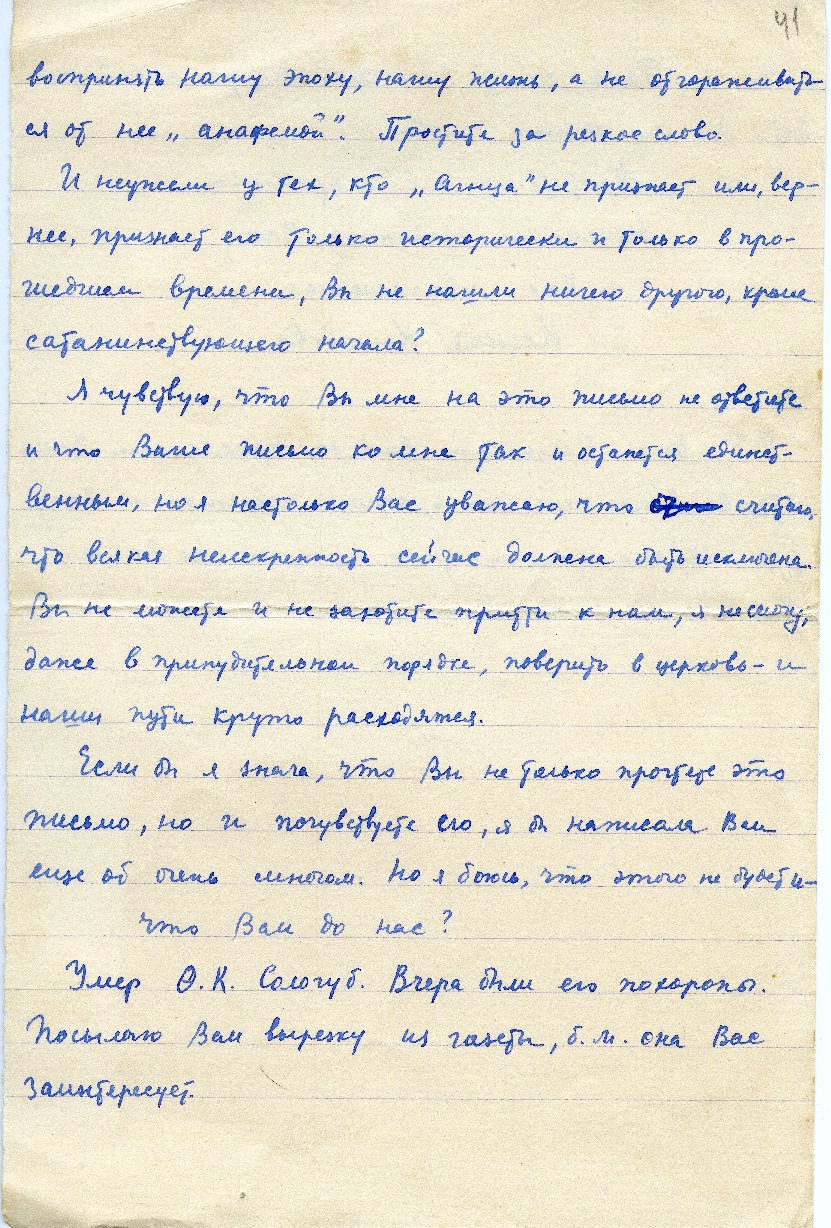 41
воспринять нашу эпоху, нашу жизнь, а не отгораживать-
ся от нее „анафемой". Простите за резкое слово.
И неужели у тех, кто „Агнца" не признает или, вер-
нее, признает его только исторически и только в про-
шедшем времени, Вы не нашли ничего другого, кроме
сатанинствующего начала?
Я чувствую, что Вы мне на это письмо не ответите
и что Ваше письмо ко мне так и останется единст-
венным, но я настолько Вас уважаю, что считаю,
что всякая неискренность сейчас должна быть исключена.
Вы не можете и не захотите притти к нам, я не смогу,
даже в принудительном порядке, поверить в церковь – и
наши пути круто расходятся.
Если бы я знала, что Вы не только прочтете это
письмо, но и почувствуете его, я бы написала Вам
еще об очень многом. Но я боюсь, что этого не будет и –
что Вам до нас?
Умер Ф.К. Сологуб. Вчера были его похороны.
Посылаю Вам вырезку из газеты, б.м. она Вас
заинтересует.